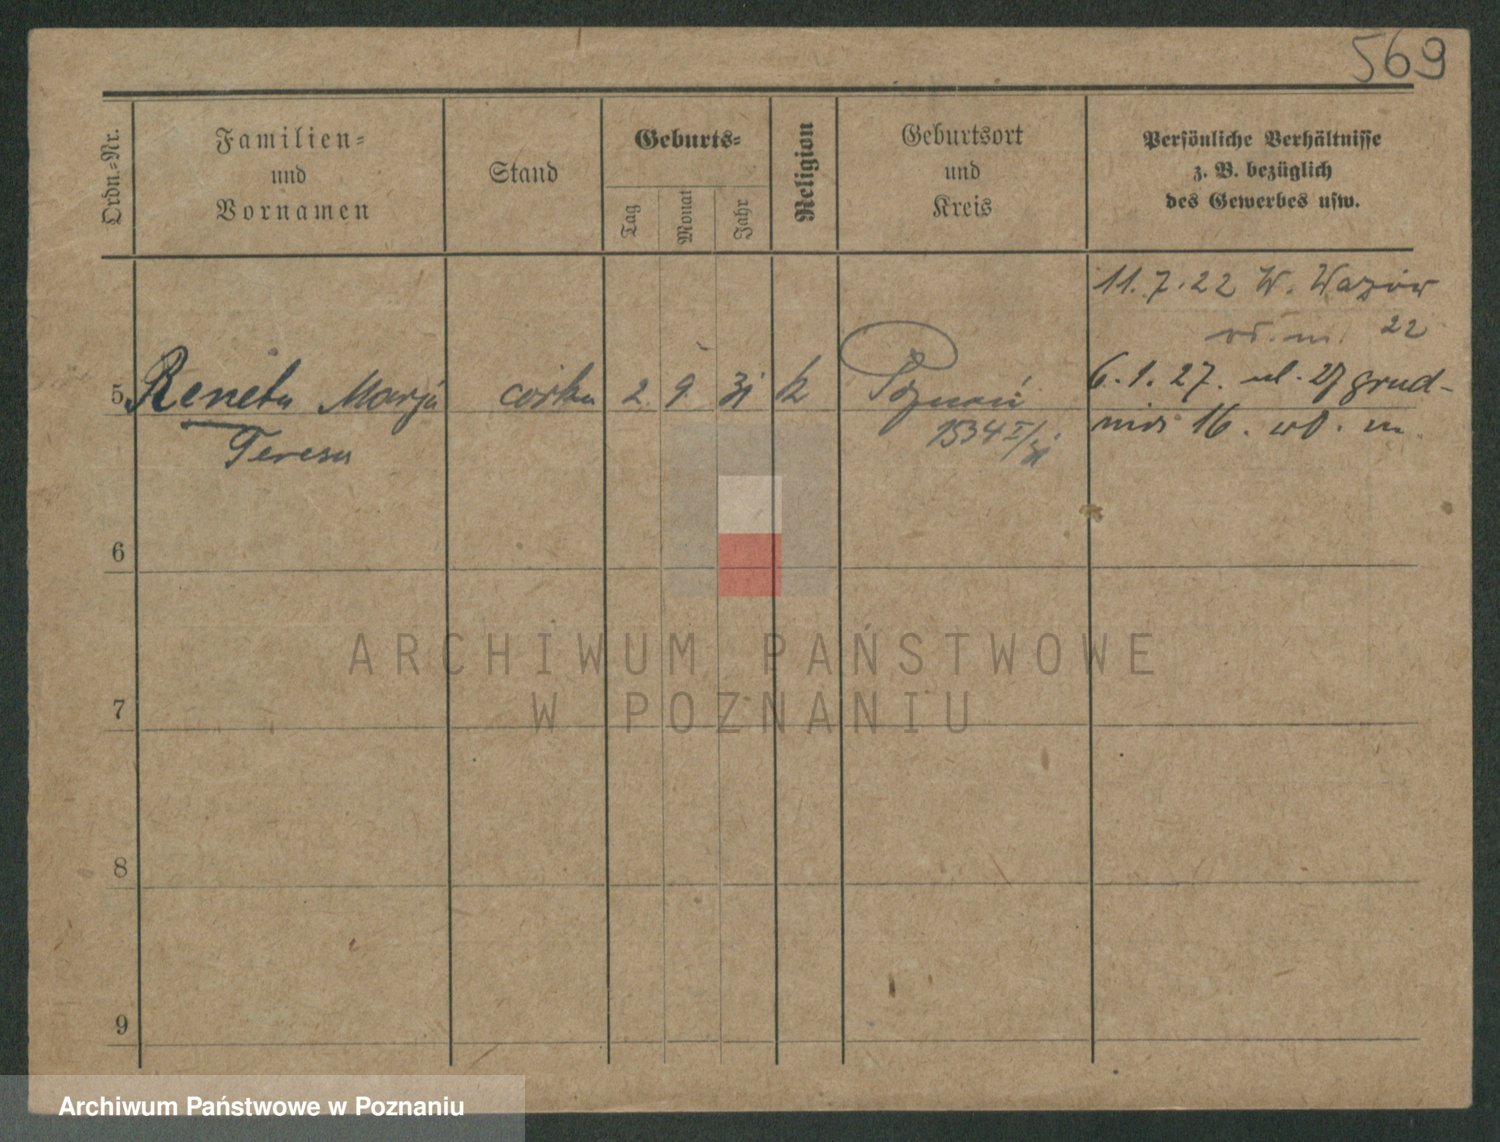 569
Ordn.-Nr.
Familien-
und
Vornamen
Stand
Geburts-
Tag
Monat
Jahr
Religion
Geburtsort
und
Kreis
Persönliche Verhältnisse
z. B. bezüglich
des Gewerbes usw.
11. 7. 22 W. Wazów
22
5 Reneta Marja córka 2. 9. 31 k Poznań 6. 1. 27. ul. 27 grud-
Teresa 1534 I/31 nia 16. wł. m.
6
7
8
9
ARCHIWUM PAŃSTWOWE
W POZNANIU
Archiwum Państwowe w Poznaniu